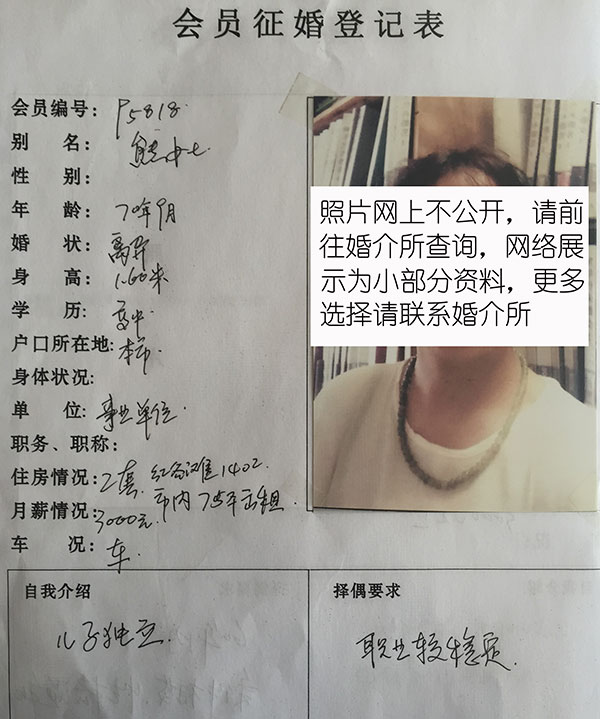 会员征婚登记表
会员编号: P5818
别 名: 熊女士
性 别:
年 龄: 70年9月
婚 状: 离异
身 高: 1.60米
学 历: 高中
户口所在地: 本市
身体状况:
单 位: 事业单位
职务、职称:
住房情况: 2套 红谷滩1402.
市内75平出租.
月薪情况: 3000元
车 况: 车.
照片网上不公开，请前
往婚介所查询，网络展
示为小部分资料，更多
选择请联系婚介所
自我介绍
儿子独立.
择偶要求
职业较稳定.